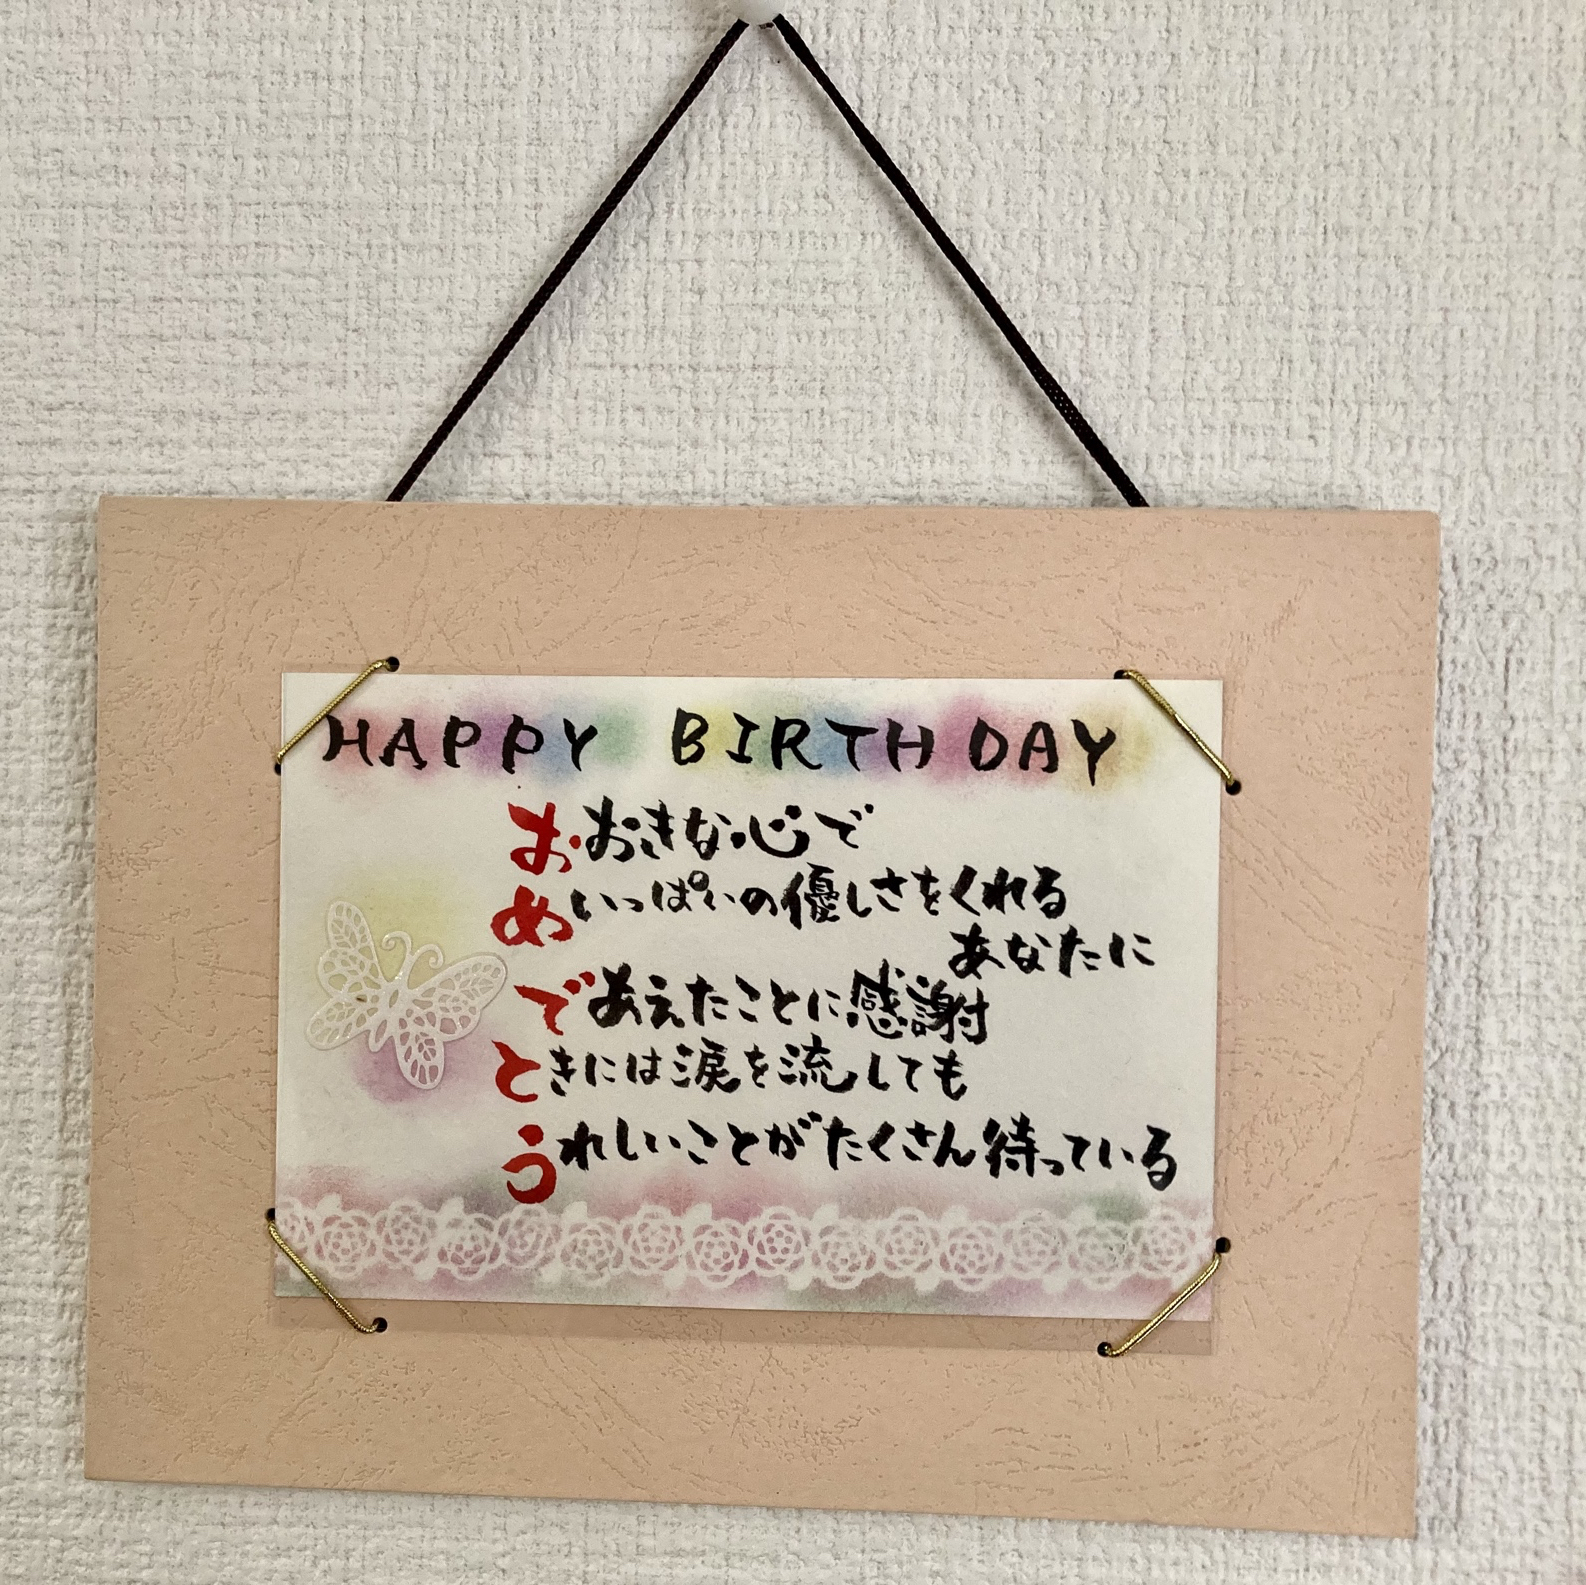 HAPPY BIRTHDAY
おおきな心で
めいっぱいの優しさをくれる
あなたに
であえたことに感謝
ときには涙を流しても
うれしいことがたくさん待っている